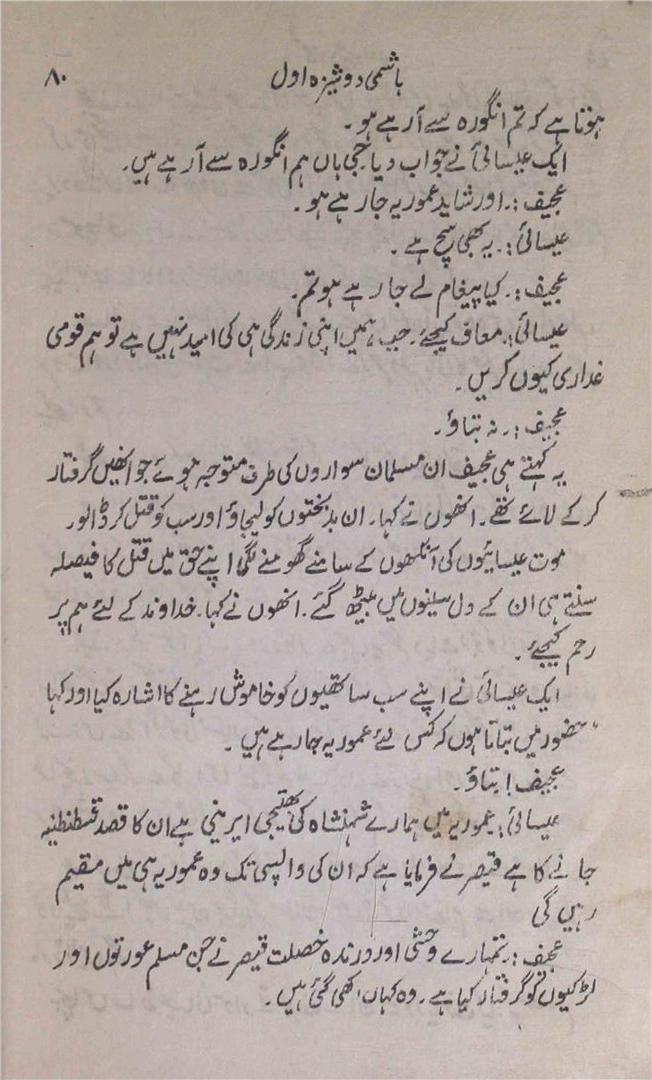 ہاشمی دوشیزہ اول ۸۰
ہوتا ہے کہ تم انگورہ سے آ رہے ہو۔
ایک عیسائی نے جواب دیا جی ہاں ہم انگورہ سے آ رہے ہیں۔
عجیف :۔ اور شاید عموریہ جا رہے ہو۔
عیسائی :۔ یہ بھی سچ ہے۔
عجیف :۔ کیا پیغام لے جا رہے ہو تم۔
عیسائی :۔ معاف کیجئے۔ جب ہمیں اپنی زندگی ہی کی امید نہیں ہے تو ہم قومی
غداری کیوں کریں۔
عجیف :۔ نہ بتاؤ۔
یہ کہتے ہی عجیف ان مسلمان سواروں کی طرف متوجہ ہوئے جو انھیں گرفتار
کر کے لائے تھے۔ انھوں نے کہا۔ ان بدبختوں کو لیجاؤ اور سب کو قتل کر ڈالو۔
موت عیسائیوں کی آنکھوں کے سامنے گھومنے لگی اپنے حق میں قتل کا فیصلہ
سنتے ہی ان کے دل سینوں میں بیٹھ گئے۔ انھوں نے کہا۔ خداوند کے لئے ہم پر
رحم کیجئے۔
ایک عیسائی نے اپنے سب ساتھیوں کو خاموش رہنے کا اشارہ کیا اور کہا
حضور میں بتاتا ہوں کہ کس لئے عموریہ جا رہے ہیں۔
عجیف! بتاؤ۔
عیسائی :۔ عموریہ میں ہمارے شہنشاہ کی بھتیجی ایرینی ہے ان کا قصد قسطنطنیہ
جانے کا ہے قیصر نے فرمایا ہے کہ ان کی واپسی تک وہ عموریہ ہی میں مقیم
رہیں گی
عجیف :۔ تمہارے وحشی اور درندہ خصلت قیصر نے جن مسلم عورتوں اور
لڑکیوں کو گرفتار کیا ہے۔ وہ کہاں رکھی گئی ہیں۔